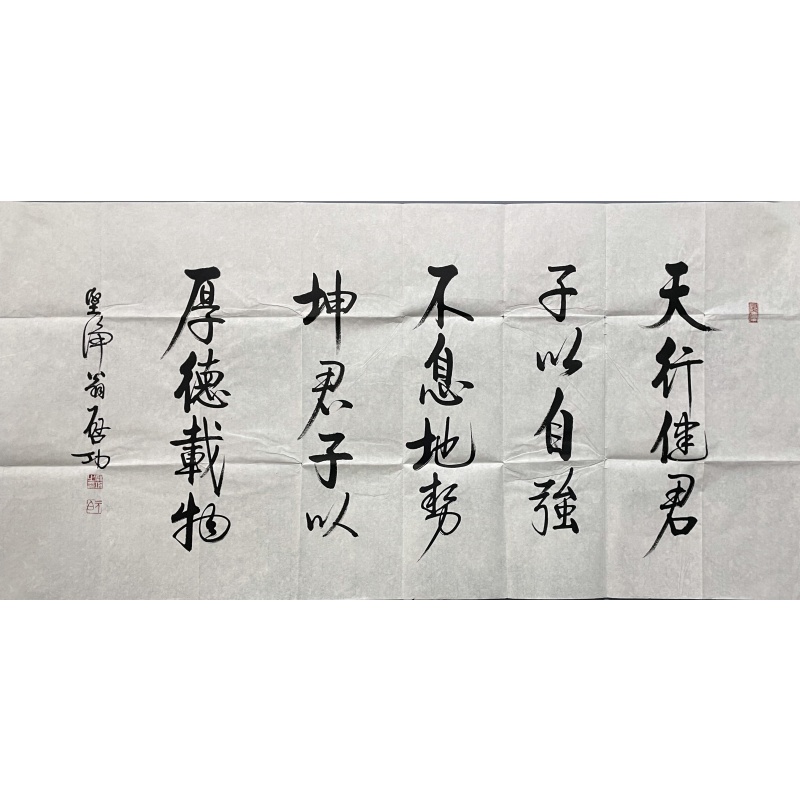 天行健君
子以自強
不息地势
坤君子以
厚德載物
堅淨翁启功